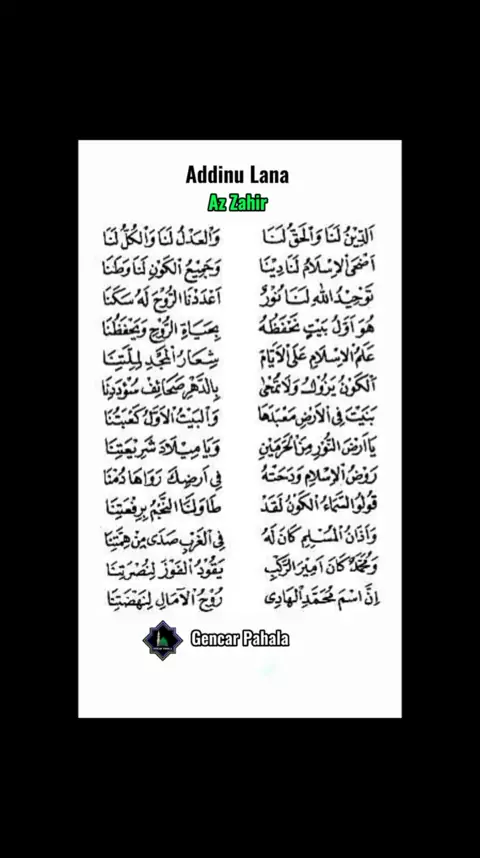 Addinu Lana
Az Zahir
اَلدِّيْنُ لَنَا وَالْحَقُّ لَنَا وَالْعَدْلُ لَنَا وَالْكُلُّ لَنَا
اَضْحَى الْإِسْلَامُ لَنَا دِيْنًا وَجَمِيْعُ الْكَوْنِ لَنَا وَطَنَا
تَوْحِيْدُ اللهِ لَنَا نُوْرٌ اَعْدَدْنَا الرُّوْحَ لَهُ سَكَنَا
هُوَ اَوَّلُ بَيْتٍ نَحْفَظُهُ بِحَيَاةِ الرُّوْحِ وَيَحْفَظُنَا
عَلَمُ الْإِسْلَامِ عَلَى الْأَيَّامِ شِعَارُ الْمَجْدِ لِمِلَّتِنَا
اَلْكَوْنُ يَزُوْلُ وَلَا تُمْحَى بِالدَّهْرِ صَحَائِفُ سُؤْدَدِنَا
بُنِيَتْ فِي الْأَرْضِ مَعْبَدُهَا وَالْبَيْتُ الْأَوَّلُ كَعْبَتُنَا
يَا اَرْضَ النُّوْرِ مِنَ الْحَرَمَيْنِ وَيَا مِيْلَادَ شَرِيْعَتِنَا
رَوْضُ الْإِسْلَامِ وَدَحْتُهُ فِي اَرْضِكَ رَوَاهَا دُمْنَا
قُوْلُوا السَّمَاءُ الْكَوْنُ لَقَدْ طَاوَلْنَا النَّجْمُ بِرِفْعَتِنَا
وَاَذَانُ الْمُسْلِمِ كَانَ لَهُ فِي الْغَرْبِ صَدَى مِنْ هِمَّتِنَا
وَمُحَمَّدٌ كَانَ اَمِيْرَ الرَّكْبِ يَقُوْدُ الْفَوْزَ لِنُصْرَتِنَا
اِنَّ اسْمَ مُحَمَّدِ الْهَادِى رُوْحُ الْآمَالِ لِنَهْضَتِنَا
Gencar Pahala